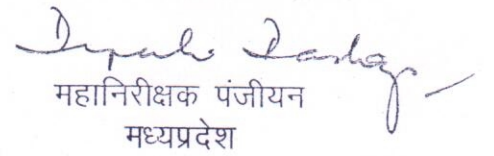 महानिरीक्षक पंजीयन
मध्यप्रदेश